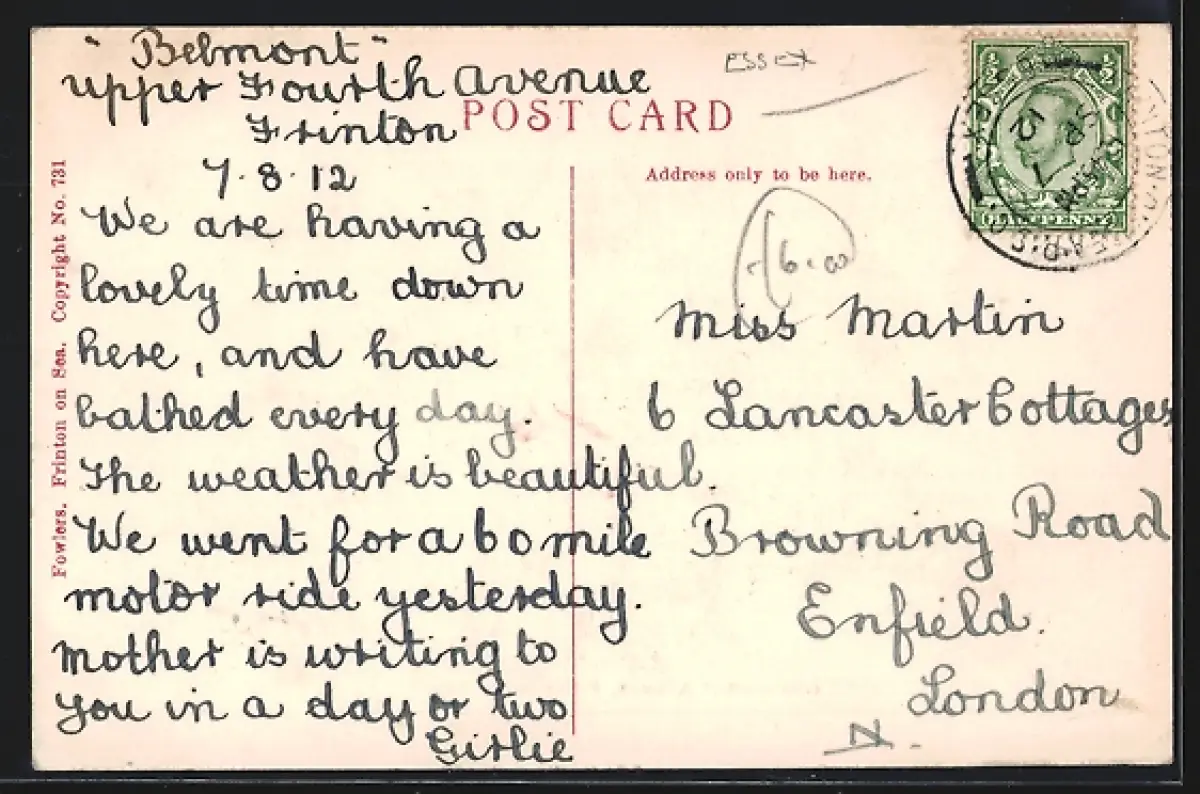 "Belmont"
Upper Fourth Avenue
Frinton
7·8·12
We are having a
lovely time down
here, and have
bathed every day.
The weather is beautiful.
We went for a 60 mile
motor ride yesterday.
Mother is writing to
you in a day or two
Girlie
ESSEX
POST CARD
Address only to be here.
6.00
Miss Martin
6 Lancaster Cottages
Browning Road
Enfield.
London
N.
Fowlers. Frinton on Sea. Copyright No. 731
HALFPENNY